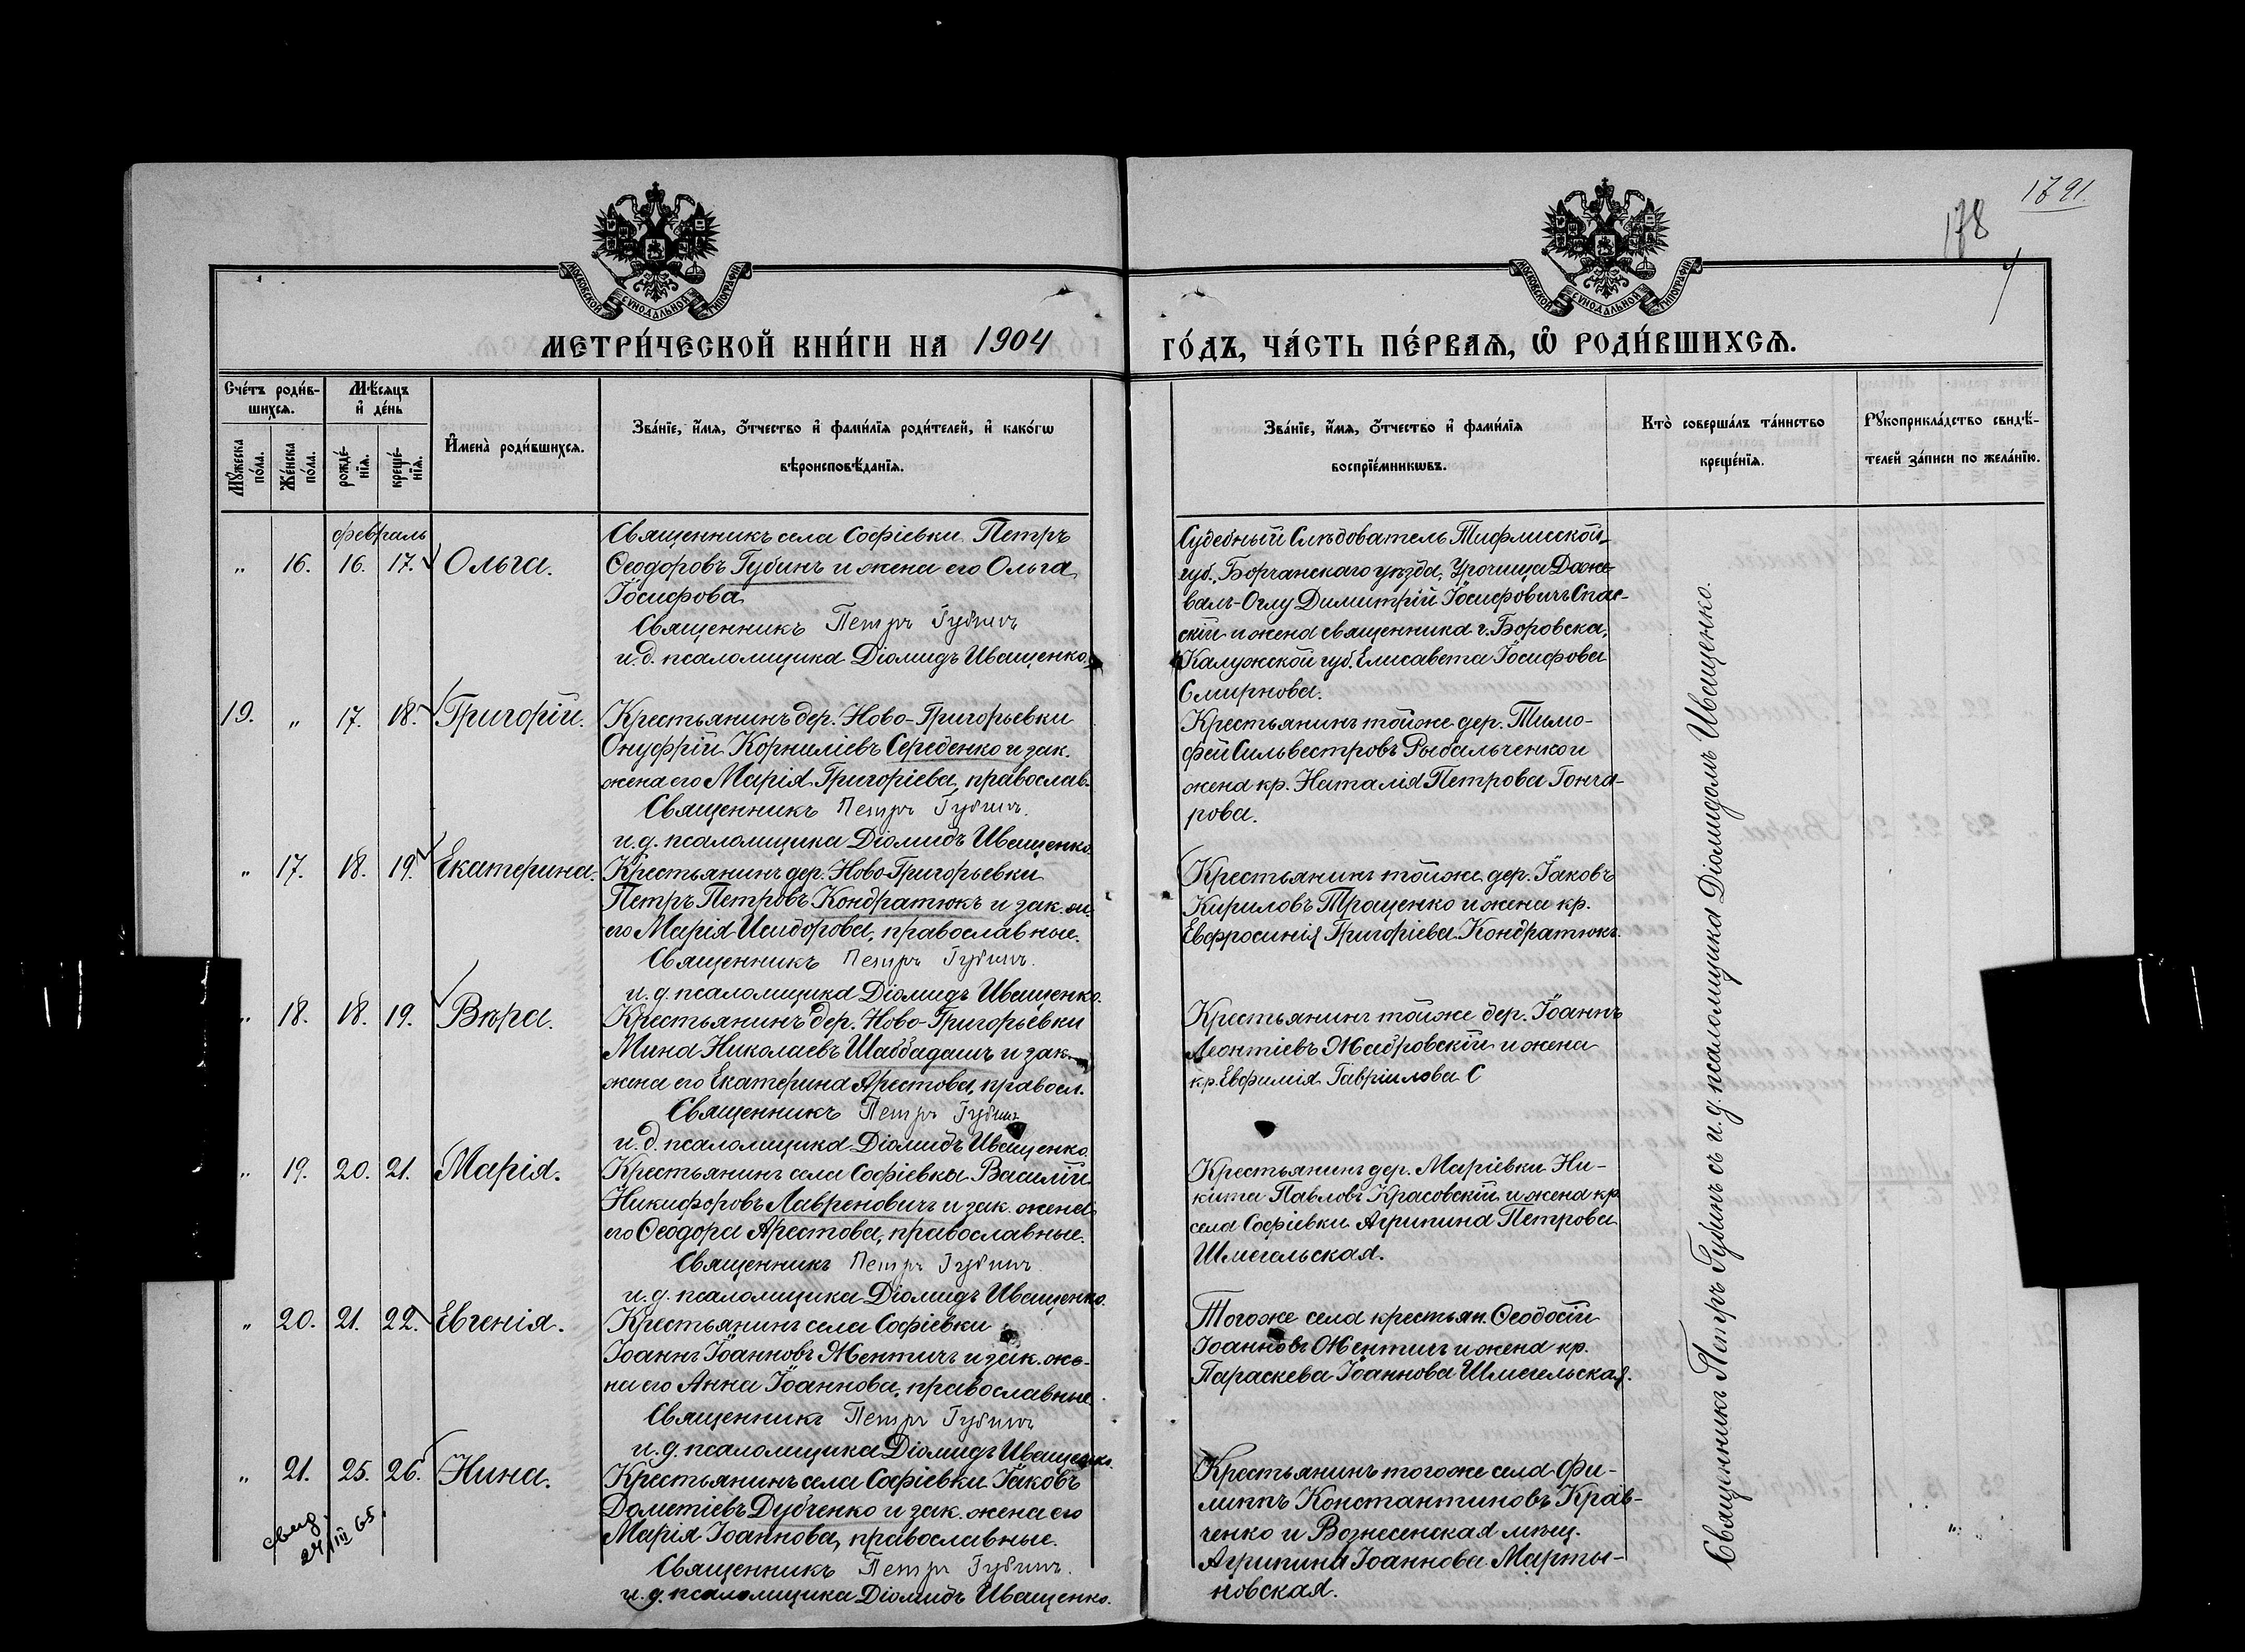 1791.
178
МОСКОВСКОЙ СѴНОДАЛЬНОЙ ТИПОГРАФІИ
МОСКОВСКОЙ СѴНОДАЛЬНОЙ ТИПОГРАФІИ
МЕТРИ́ЧЕСКОЙ КНИ́ГИ НА 1904
ГО́ДЪ, ЧА́СТЬ ПЕ́РВАѦ, Ѽ РОДИ́ВШИХСѦ.
Сче́тъ роди́в-
шихсѧ.
Мѣ́сѧцъ
и҆ де́нь
Мꙋ́жеска
по́ла.
Же́нска
по́ла.
рожде́-
нїѧ.
креще́-
нїѧ.
И҆мена̀ роди́вшихсѧ.
Зва́нїе, и҆́мѧ, ѻ҆́тчество и҆ фами́лїѧ роди́телей, и҆ како́гѡ
вѣроисповѣ́данїѧ.
Зва́нїе, и҆́мѧ, ѻ҆́тчество и҆ фами́лїѧ
воспрїе́мникѡвъ.
Кто̀ соверша́лъ та́инство
креще́нїѧ.
Рꙋкоприкла́дство свидѣ́-
телей за́писи по жела́нїю.
февраль
„ 16. 16. 17. Ольга.
Священникъ села Софіевки Петръ
Ѳеодоровъ Губинъ и жена его Ольга
Іосифова
Священникъ Петръ Губинъ
и. д. псаломщика Діомидъ Иващенко.
Судебный Слѣдователь Тифлисской
губ., Борчанскаго уѣзда, Урочища
валъ-Оглу Димитрій Іосифовичъ Спас-
скій и жена священника г. Боровска,
Калужской губ. Елисавета Іосифова
Смирнова.
19. „ 17. 18. Григорій.
Крестьянинъ дер. Ново-Григорьевки
Онуфрій Корниліевъ Середенко и зак.
жена его Марія Григоріева, православ.
Священникъ Петръ Губинъ.
и. д. псаломщика Діомидъ Иващенко.
Крестьянинъ тойже дер. Тимо-
фей Сильвестровъ Рыбальченко и
жена кр. Наталія Петрова Гонча-
рова.
„ 17. 18. 19. Екатерина.
Крестьянинъ дер. Ново-Григорьевки
Петръ Петровъ Кондратюкъ и зак. ж.
его Марія Исидорова, православные.
Священникъ Петръ Губинъ.
и. д. псаломщика Діомидъ Иващенко.
Крестьянинъ тойже дер. Іаковъ
Кириловъ Троценко и жена кр.
Евфросинія Григоріева Кондратюкъ.
„ 18. 18. 19. Вѣра.
Крестьянинъ дер. Ново-Григорьевки
Мина Николаевъ Шаббадашъ и зак.
жена его Екатерина Арестова, правосл.
Священникъ Петръ Губинъ
и. д. псаломщика Діомидъ Иващенко.
Крестьянинъ тойже дер. Іоаннъ
Леонтіевъ Жабровскій и жена
кр. Евфимія Гавріилова С
„ 19. 20. 21. Марія.
Крестьянинъ села Софіевки Василій
Никифоровъ Лавреновичъ и зак. жена
его Ѳеодора Арестова, православные.
Священникъ Петръ Губинъ.
и. д. псаломщика Діомидъ Иващенко.
Крестьянинъ дер. Маріевки Ни-
кита Павловъ Красовскій и жена кр.
села Софіевки Агрипина Петрова
Шмегельская.
„ 20. 21. 22. Евгенія.
Крестьянинъ села Софіевки
Іоаннъ Іоанновъ Жентичъ и зак. же-
на его Анна Іоаннова, православные.
Священникъ Петръ Губинъ
и. д. псаломщика Діомидъ Иващенко.
Тогоже села крестьян. Ѳеодосій
Іоанновъ Жентичъ и жена кр.
Параскева Іоаннова Шмегельская.
„ 21. 25. 26. Нина.
Крестьянинъ села Софіевки Іаковъ
Дометіевъ Дубченко и зак. жена его
Марія Іоаннова, православные.
Священникъ Петръ Губинъ.
и. д. псаломщика Діомидъ Иващенко.
Крестьянинъ тогоже села Фи-
липпъ Константиновъ Крав-
ченко и Вознесенская мѣщ.
Агрипина Іоаннова Марты-
новская.
свид.
24/III 65.
Священникъ Петръ Губинъ съ и. д. псаломщика Діомидомъ Иващенко.